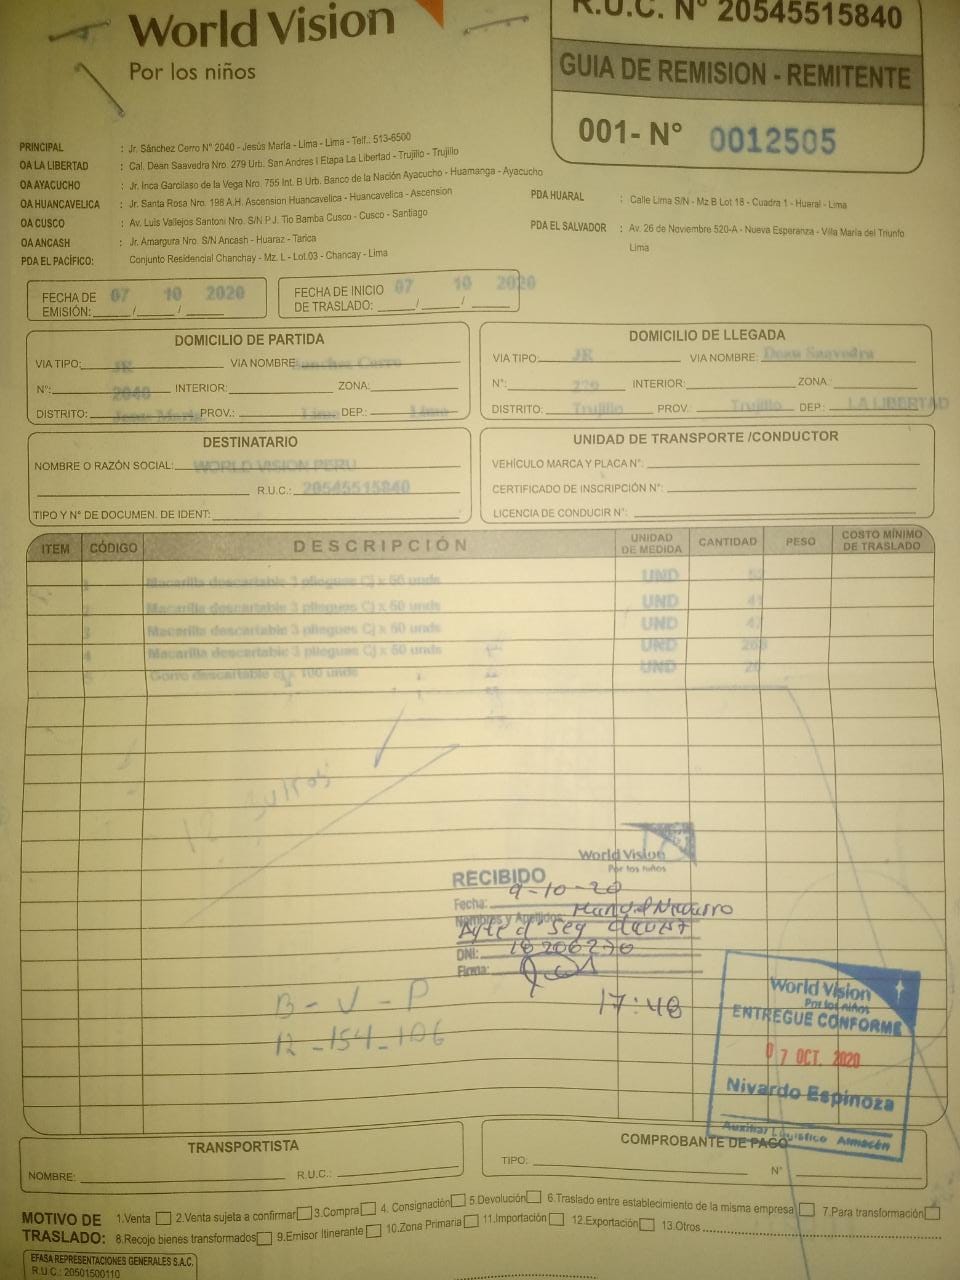 World Vision
Por los niños
R.U.C. N° 20545515840
GUIA DE REMISION - REMITENTE
001- N° 0012505
PRINCIPAL : Jr. Sánchez Cerro N° 2040 - Jesús María - Lima - Lima - Telf.: 513-6500
OA LA LIBERTAD : Cal. Dean Saavedra Nro. 279 Urb. San Andres I Etapa La Libertad - Trujillo - Trujillo
OA AYACUCHO : Jr. Inca Garcilaso de la Vega Nro. 755 Int. B Urb. Banco de la Nación Ayacucho - Huamanga - Ayacucho
OA HUANCAVELICA : Jr. Santa Rosa Nro. 198 A.H. Ascension Huancavelica - Huancavelica - Ascension
OA CUSCO : Av. Luis Vallejos Santoni Nro. S/N P.J. Tio Bamba Cusco - Cusco - Santiago
OA ANCASH : Jr. Amargura Nro. S/N Ancash - Huaraz - Tarica
PDA EL PACÍFICO: Conjunto Residencial Chanchay - Mz. L - Lot.03 - Chancay - Lima
PDA HUARAL : Calle Lima S/N - Mz B Lot 18 - Cuadra 1 - Huaral - Lima
PDA EL SALVADOR : Av. 26 de Noviembre 520-A - Nueva Esperanza - Villa María del Triunfo
Lima
FECHA DE EMISIÓN: 07 / 10 / 2020
FECHA DE INICIO DE TRASLADO: 07 / 10 / 2020
DOMICILIO DE PARTIDA
VIA TIPO: JR VIA NOMBRE: Sanchez Cerro
N°: 2040 INTERIOR: ZONA:
DISTRITO: Jesus Maria PROV.: Lima DEP.: Lima
DOMICILIO DE LLEGADA
VIA TIPO: JR VIA NOMBRE: Dean Saavedra
N°: 279 INTERIOR: ZONA:
DISTRITO: Trujillo PROV. Trujillo DEP.: LA LIBERTAD
DESTINATARIO
NOMBRE O RAZÓN SOCIAL: WORLD VISION PERU
R.U.C.: 20545515840
TIPO Y N° DE DOCUMEN. DE IDENT:
UNIDAD DE TRANSPORTE /CONDUCTOR
VEHÍCULO MARCA Y PLACA N°:
CERTIFICADO DE INSCRIPCIÓN N°:
LICENCIA DE CONDUCIR N°:
ITEM CÓDIGO DESCRIPCIÓN UNIDAD DE MEDIDA CANTIDAD PESO COSTO MÍNIMO DE TRASLADO
1 Macarilla descartable 3 pliegues Cj x 50 unds UND
2 Macarilla descartable 3 pliegues Cj x 50 unds UND
3 Macarilla descartable 3 pliegues Cj x 50 unds UND
4 Macarilla descartable 3 pliegues Cj x 50 unds UND
5 Gorro descartable cj x 100 unds UND
12 Bultos
World Vision
Por los niños
RECIBIDO
Fecha: 9-10-20
Nombres y Apellidos: Manuel Navarro
DNI: 18206270
Firma:
17:48
B - V - P
12 - 154 - 106
World Vision
Por los niños
ENTREGUE CONFORME
07 OCT. 2020
Nivardo Espinoza
Auxiliar Logístico Almacén
TRANSPORTISTA
NOMBRE: R.U.C.:
COMPROBANTE DE PAGO
TIPO: N°
MOTIVO DE TRASLADO:
1.Venta 2.Venta sujeta a confirmar 3.Compra 4. Consignación 5.Devolución 6.Traslado entre establecimiento de la misma empresa 7.Para transformación
8.Recojo bienes transformados 9.Emisor Itinerante 10.Zona Primaria 11.Importación 12.Exportación 13.Otros
EFASA REPRESENTACIONES GENERALES S.A.C.
R.U.C.: 20501500110